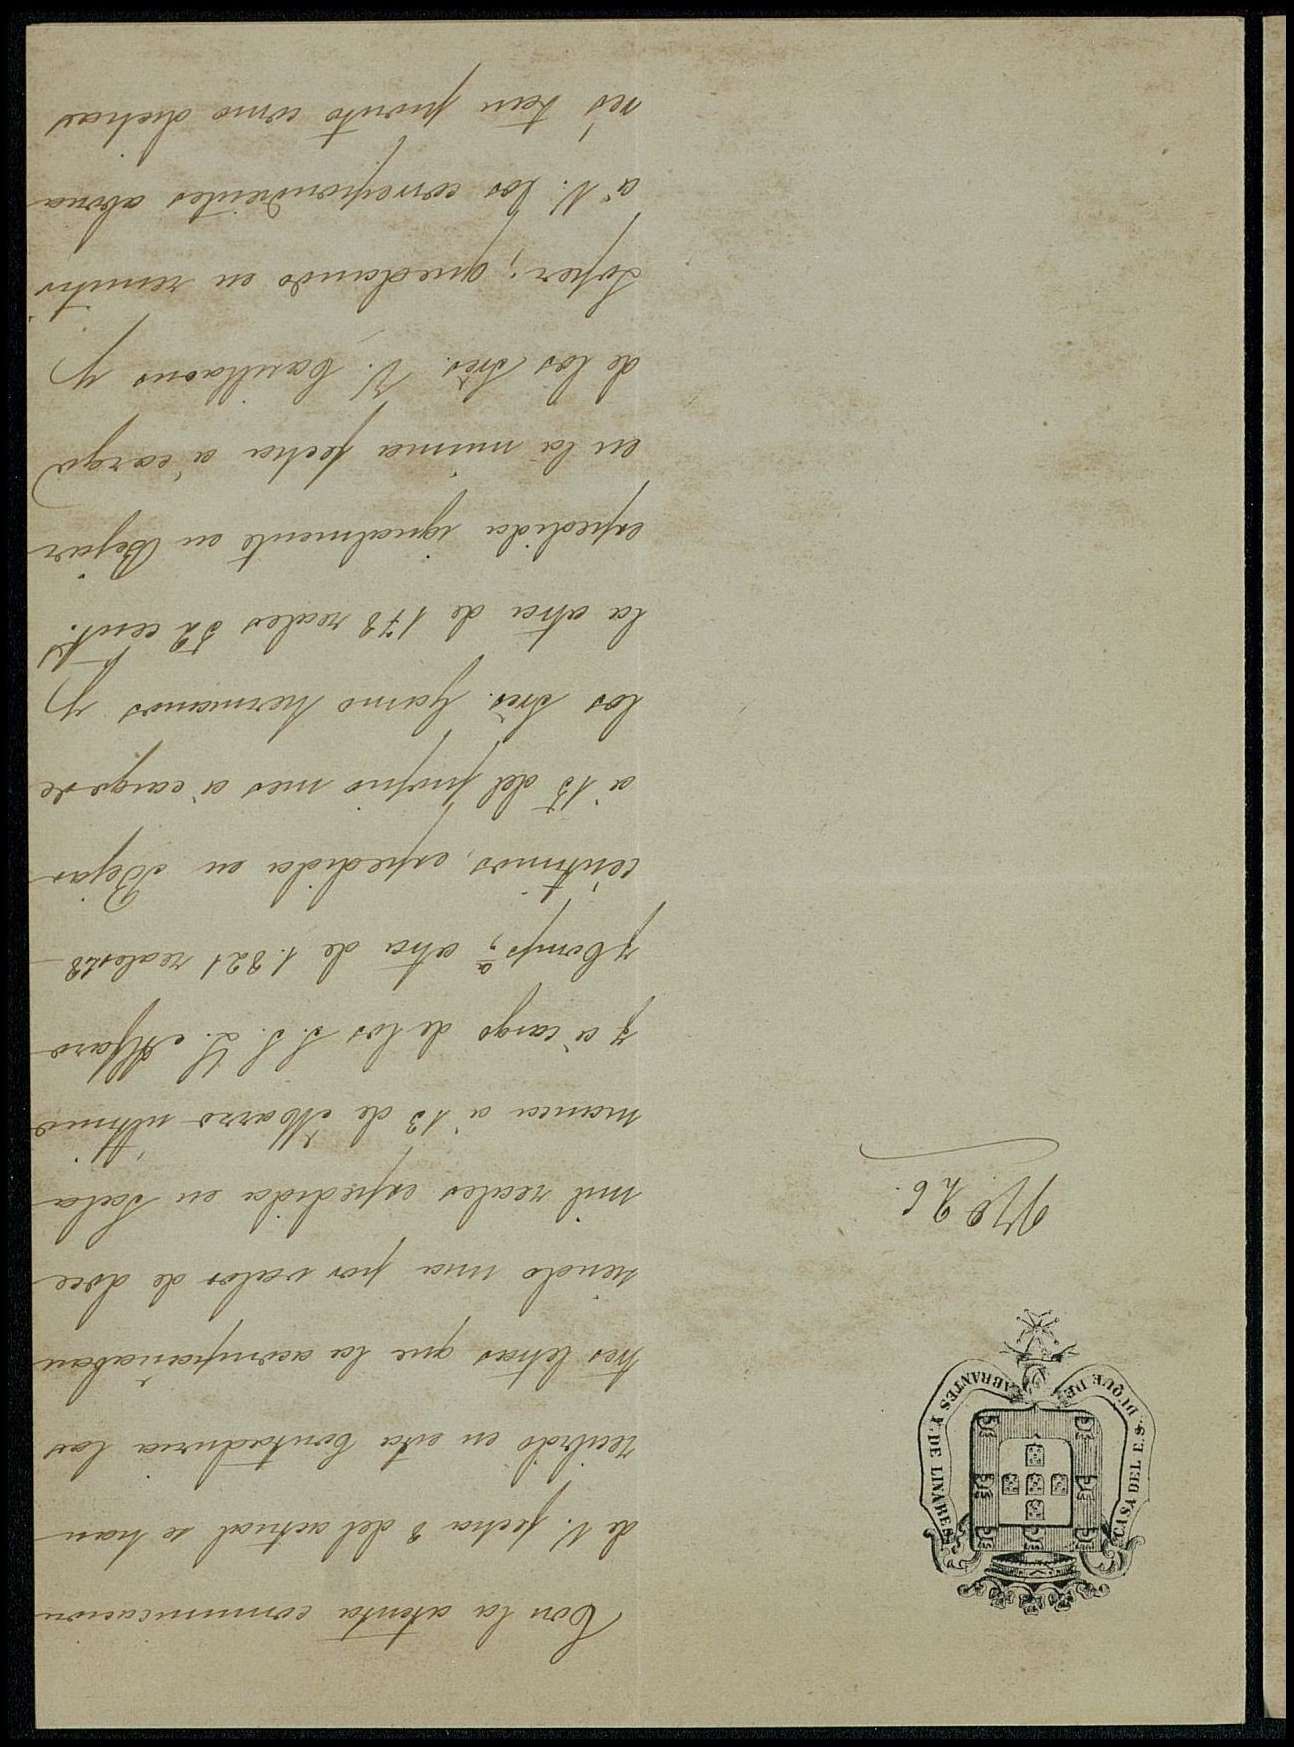 CASA DEL E.S. DUQUE DE ABRANTES Y DE LINARES
Nº 26.
Con la atenta comunicacion
de V. fecha 8 del actual se han
recibido en esta Contaduria las
tres letras que la acompañaban
siendo una por valor de doce
mil reales espedida en Sala-
manca a 13 de Marzo ultimo
y á cargo de los S. S. L. Alfaro
y Compª; otra de 1.821 reales 48
centimos, espedida en Bejar
á 15 del propio mes á cargo de
los Sres. Yarno hermanos y
la otra de 178 reales 52 cents.
espedida igualmente en Bejar
en la misma fecha á cargo
de los Sres. V. Carillaons y
Loper; quedando en remitir
á V. los correspondientes abona-
rés tan pronto como dichas